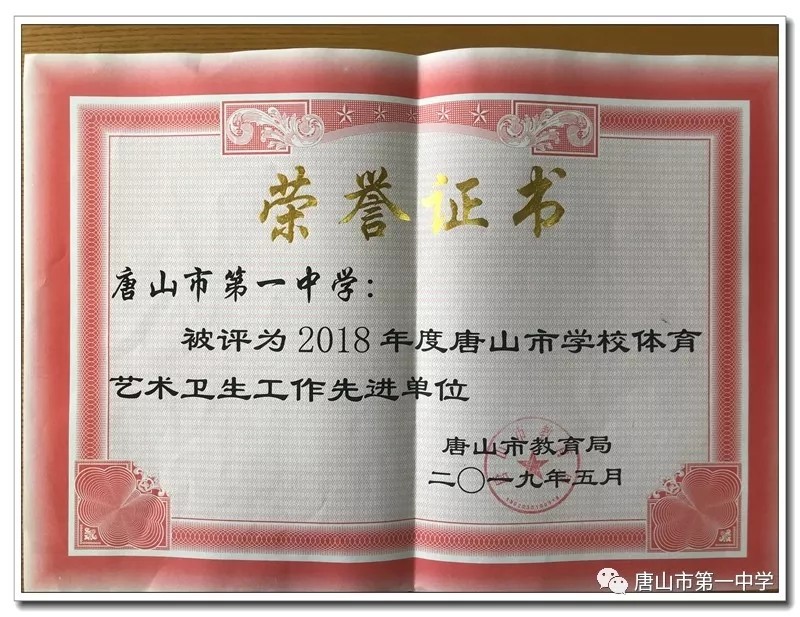 荣誉证书
唐山市第一中学：
被评为2018年度唐山市学校体育
艺术卫生工作先进单位
唐山市教育局
二〇一九年五月
唐山市第一中学